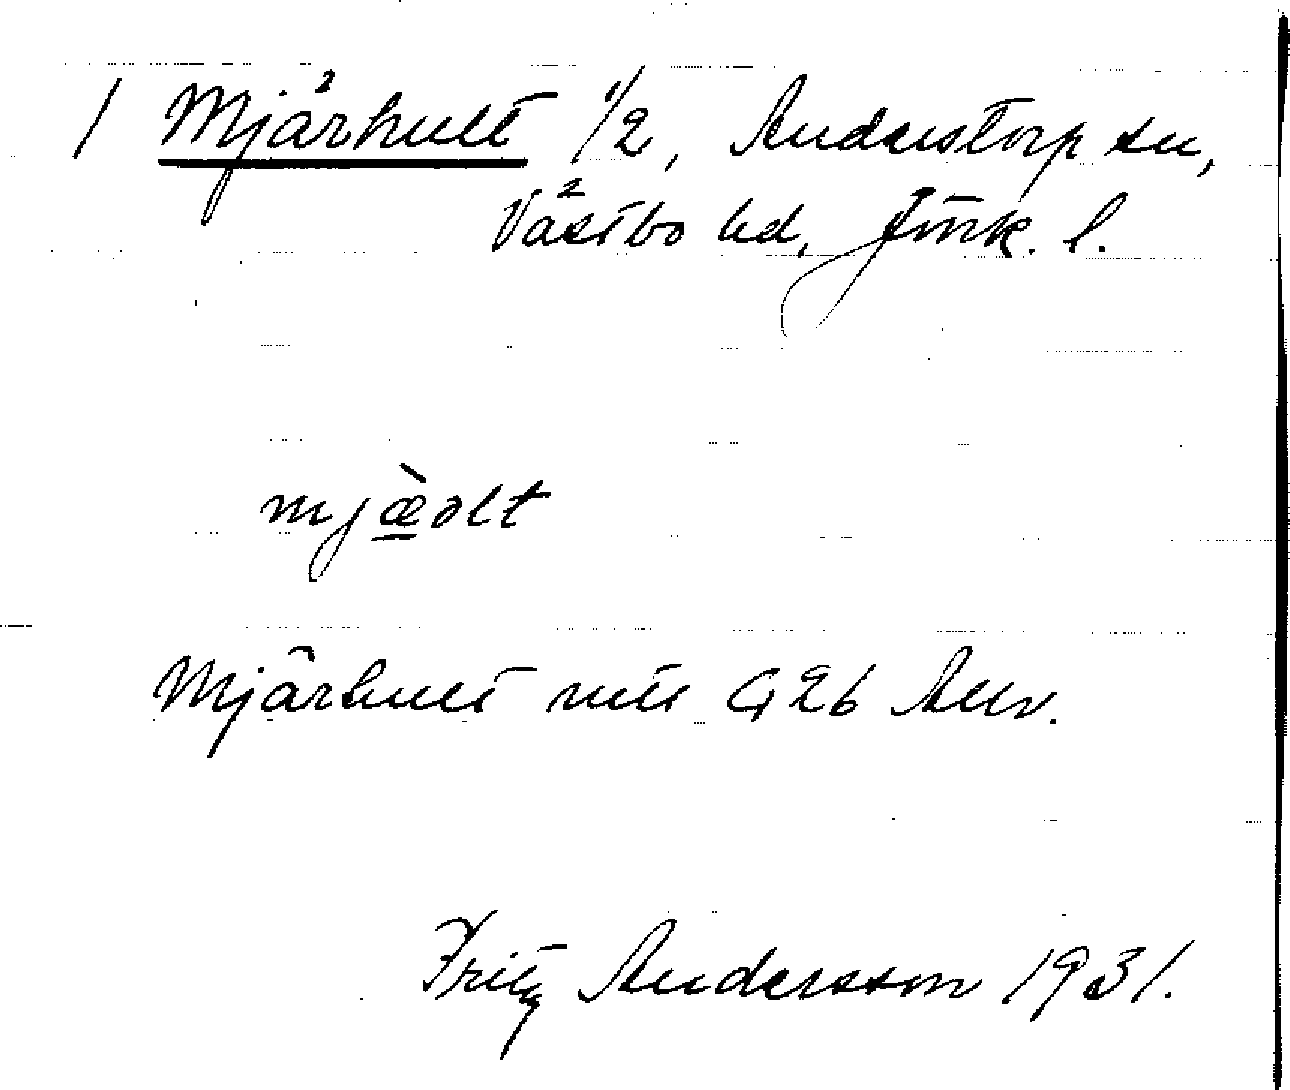 / Mjärhult 1/2, Anderstorp sn,
Västbo hd, Jönk. l.
mjæ̀olt
Mjärhult
Fritz Andersson 1931.